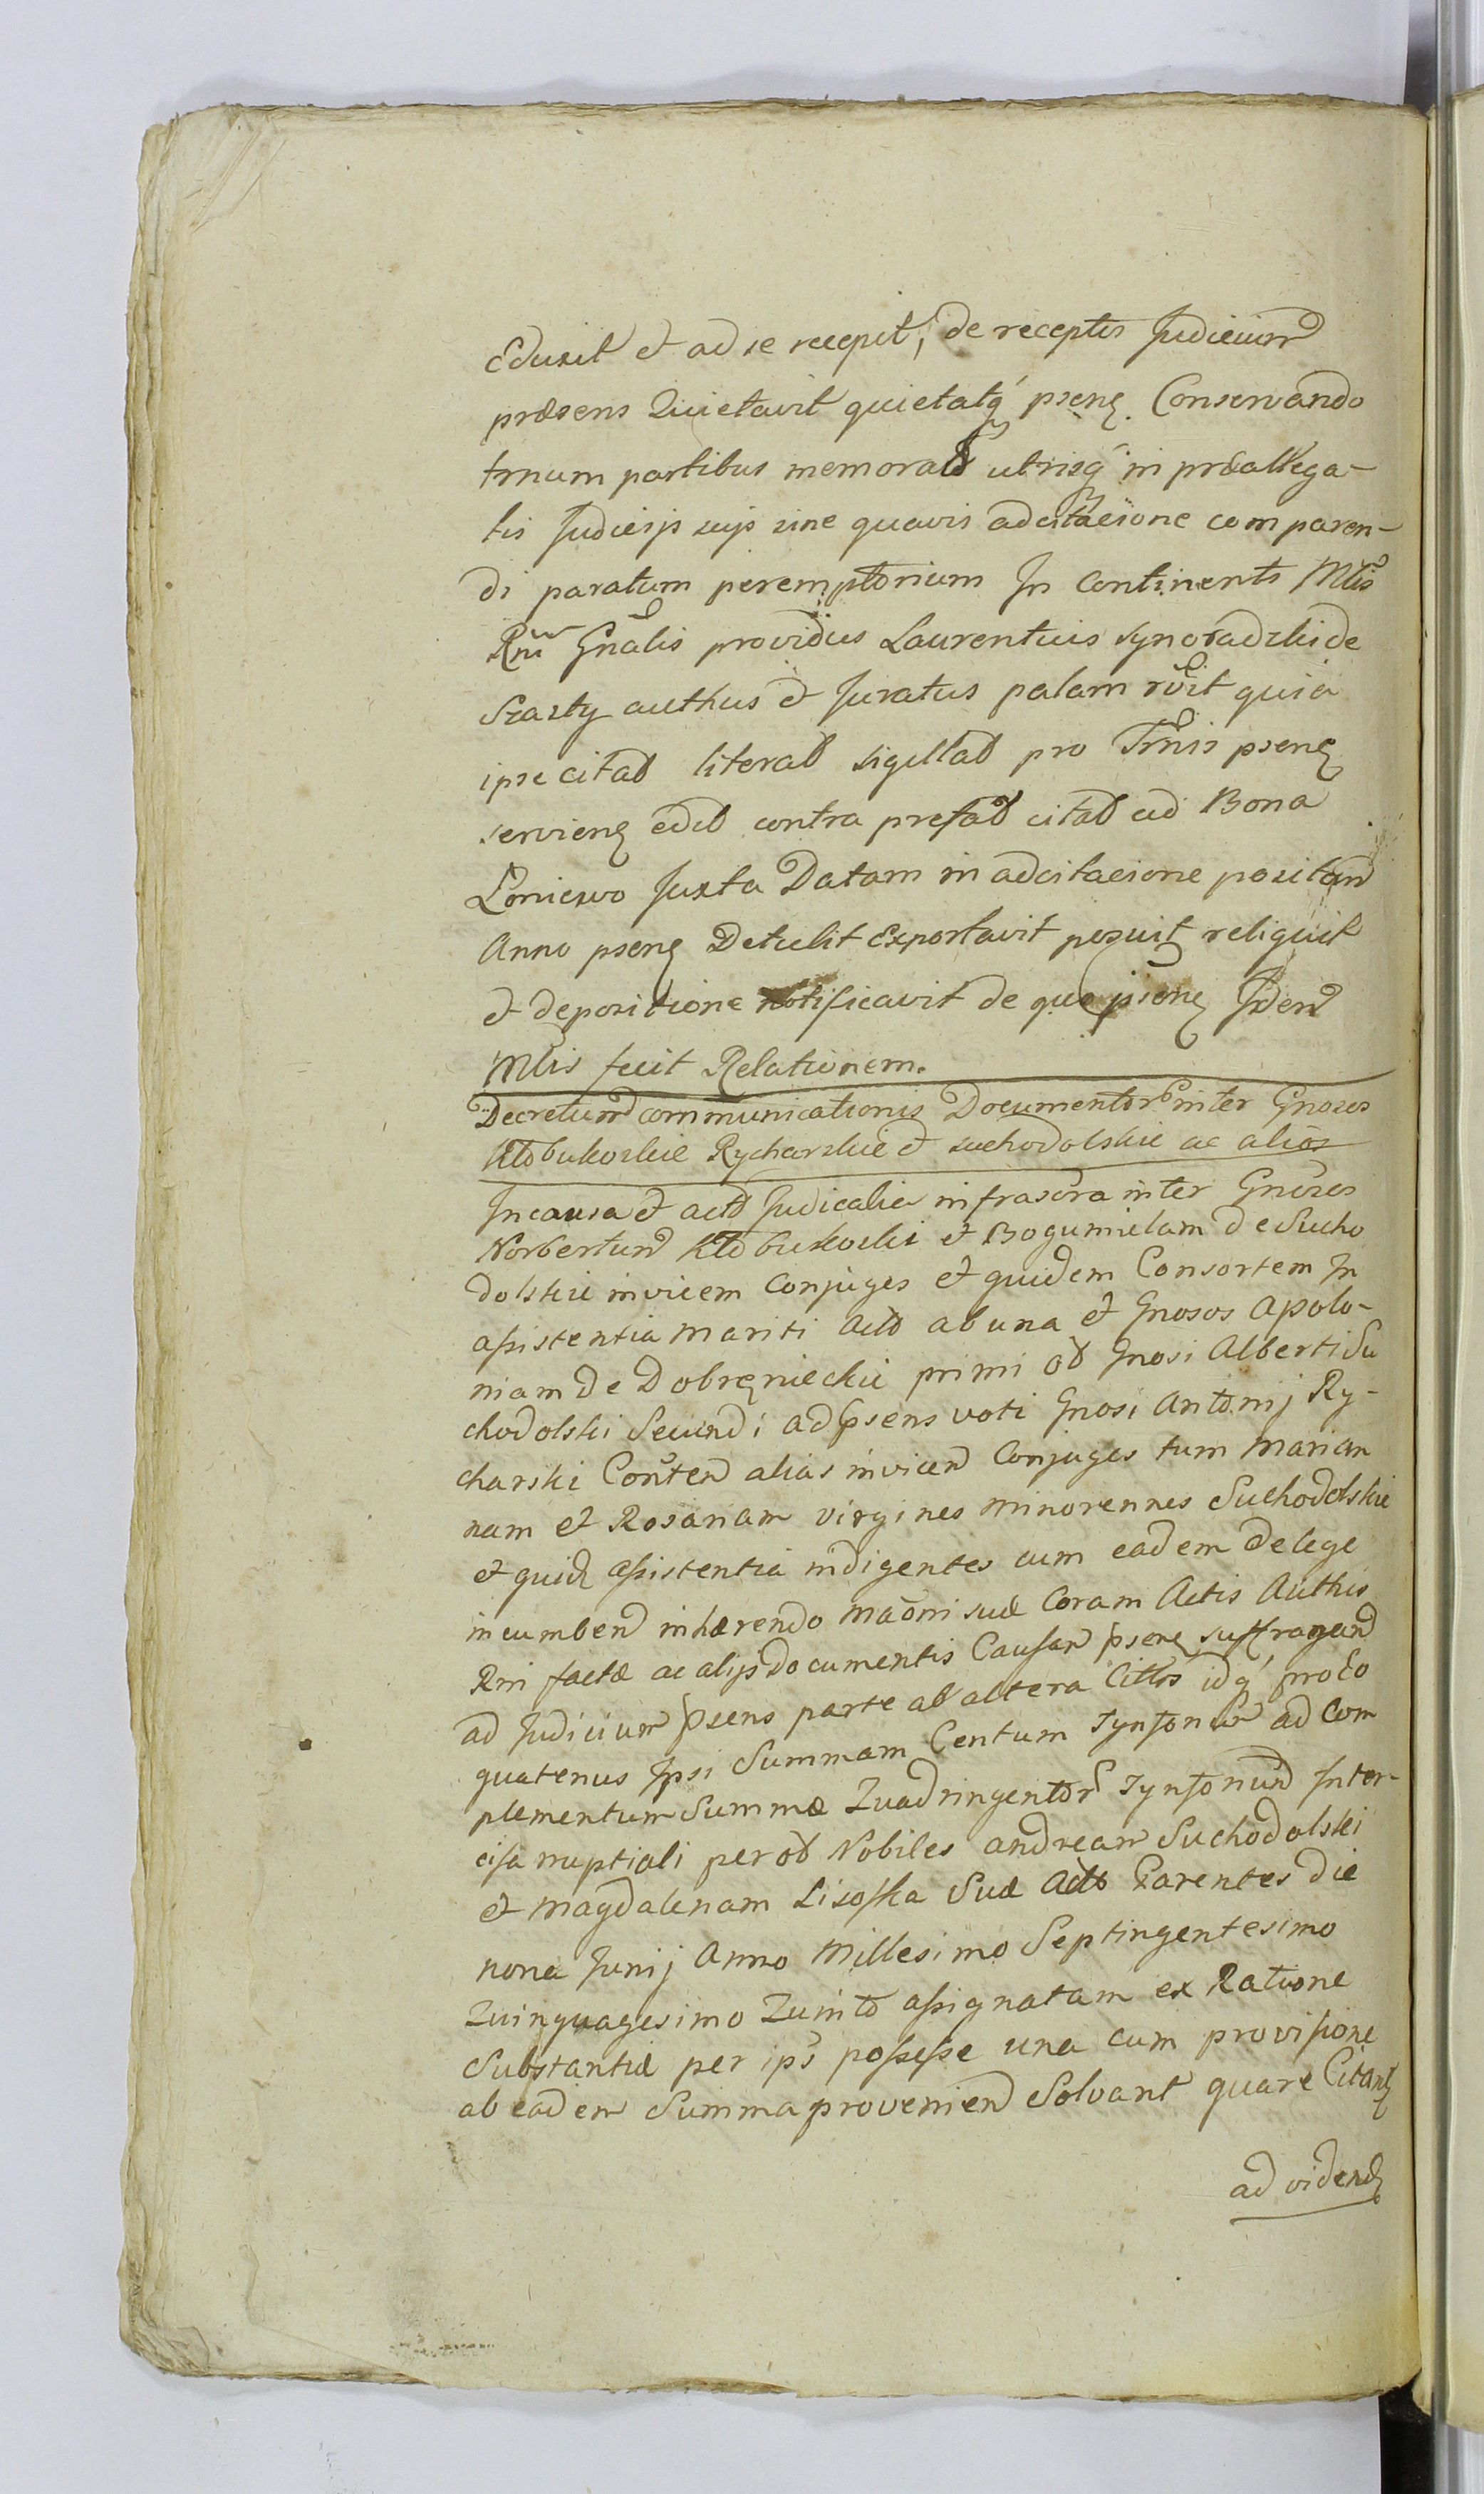 Eduxit et ad se recepit, de receptis Judicium
præsens Quietavit quietatq́ psenę. Conservando
trnum partibus memorat utrisq́ in præallega-
tis Judicijs suis sine quavis adcitacione comparen-
di paratum peremptorium In continenti Mlis
Rni Gnalis providus Laurentius de
authus et Juratus palam rvit quia
ipse citat literat sigillat pro Trnis psenę
servienę edit contra prefat citat ad Bona
Łoniewo Juxta Datam in adcitacione positam
Anno psenę Detulit Exportavit posuit religuit
et depositione notificavit de quo psenę Idem
Mlis fecit Relationem.
Decretum communicationis Documentor inter Gnosos
Kłobukoskie Rycharskie et suchodolskie ac alios
In causa et actō Judicalia infrascra inter Gnosos
Norbertum Kłobukoski et Bogumielam de Sucho
dolskie invicem Conjuges et quidem Consortem In
assistentia mariti Actō ab una et Gnosos Apolo-
niam de Dobręnieckie primi ob Gnosi Alberti Su
chodolski Secundi ad psens voti Gnosi Antonij Ry-
charski Conten alias invicem Conjuges tum Marian
nam et Rosariam virgines minorennes Suchodolskie
et quid assistentia indigentes cum eadem de lege
incumbend inhærendo maōni suæ Coram Actis Authis
Rni factæ ac alijs documentis Causam psenę suffragand
ad Judicium psens parte ab altera Cittos idq́ pro Eo
quatenus Ipsi Summam Centum Tynfonum ad Com
plementum Summæ Quadringentor Tynfonum Inter-
cisa nuptiali per ob Nobiles Andream Suchodolski
et Magdalenam Lisoska Suæ Actō Parentes die
nona Junij Anno Millesimo Septingentesimo
Quinquagesimo Quinto assignatam ex Ratione
Substantiæ per ips possesse una cum provisione
ab eadem Summa provenien Solvant quare Citant
ad videnđ